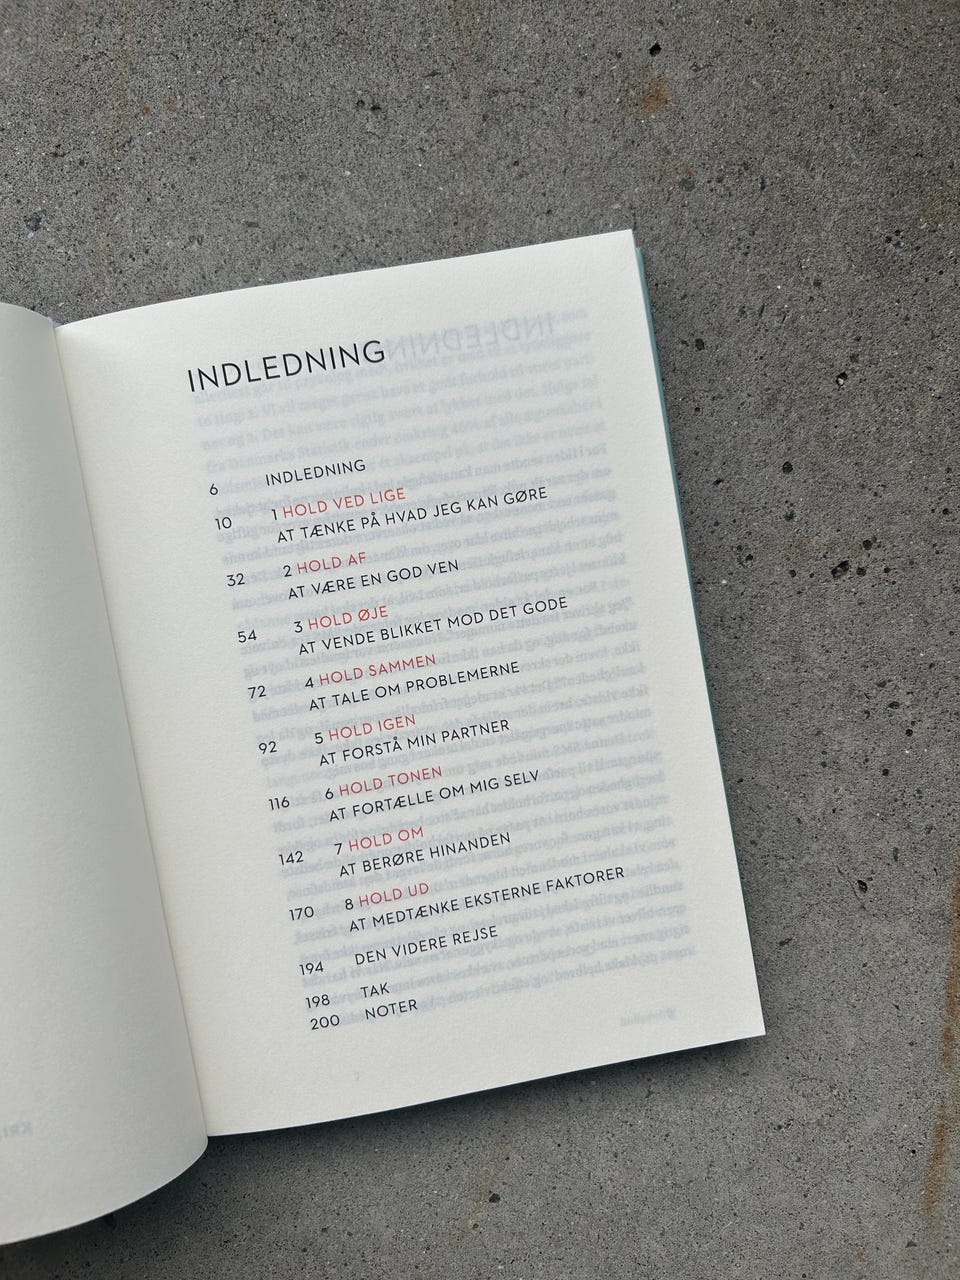 INDLEDNING
6 INDLEDNING
10 1 HOLD VED LIGE
AT TÆNKE PÅ HVAD JEG KAN GØRE
32 2 HOLD AF
AT VÆRE EN GOD VEN
54 3 HOLD ØJE
AT VENDE BLIKKET MOD DET GODE
72 4 HOLD SAMMEN
AT TALE OM PROBLEMERNE
92 5 HOLD IGEN
AT FORSTÅ MIN PARTNER
116 6 HOLD TONEN
AT FORTÆLLE OM MIG SELV
142 7 HOLD OM
AT BERØRE HINANDEN
170 8 HOLD UD
AT MEDTÆNKE EKSTERNE FAKTORER
194 DEN VIDERE REJSE
198 TAK
200 NOTER